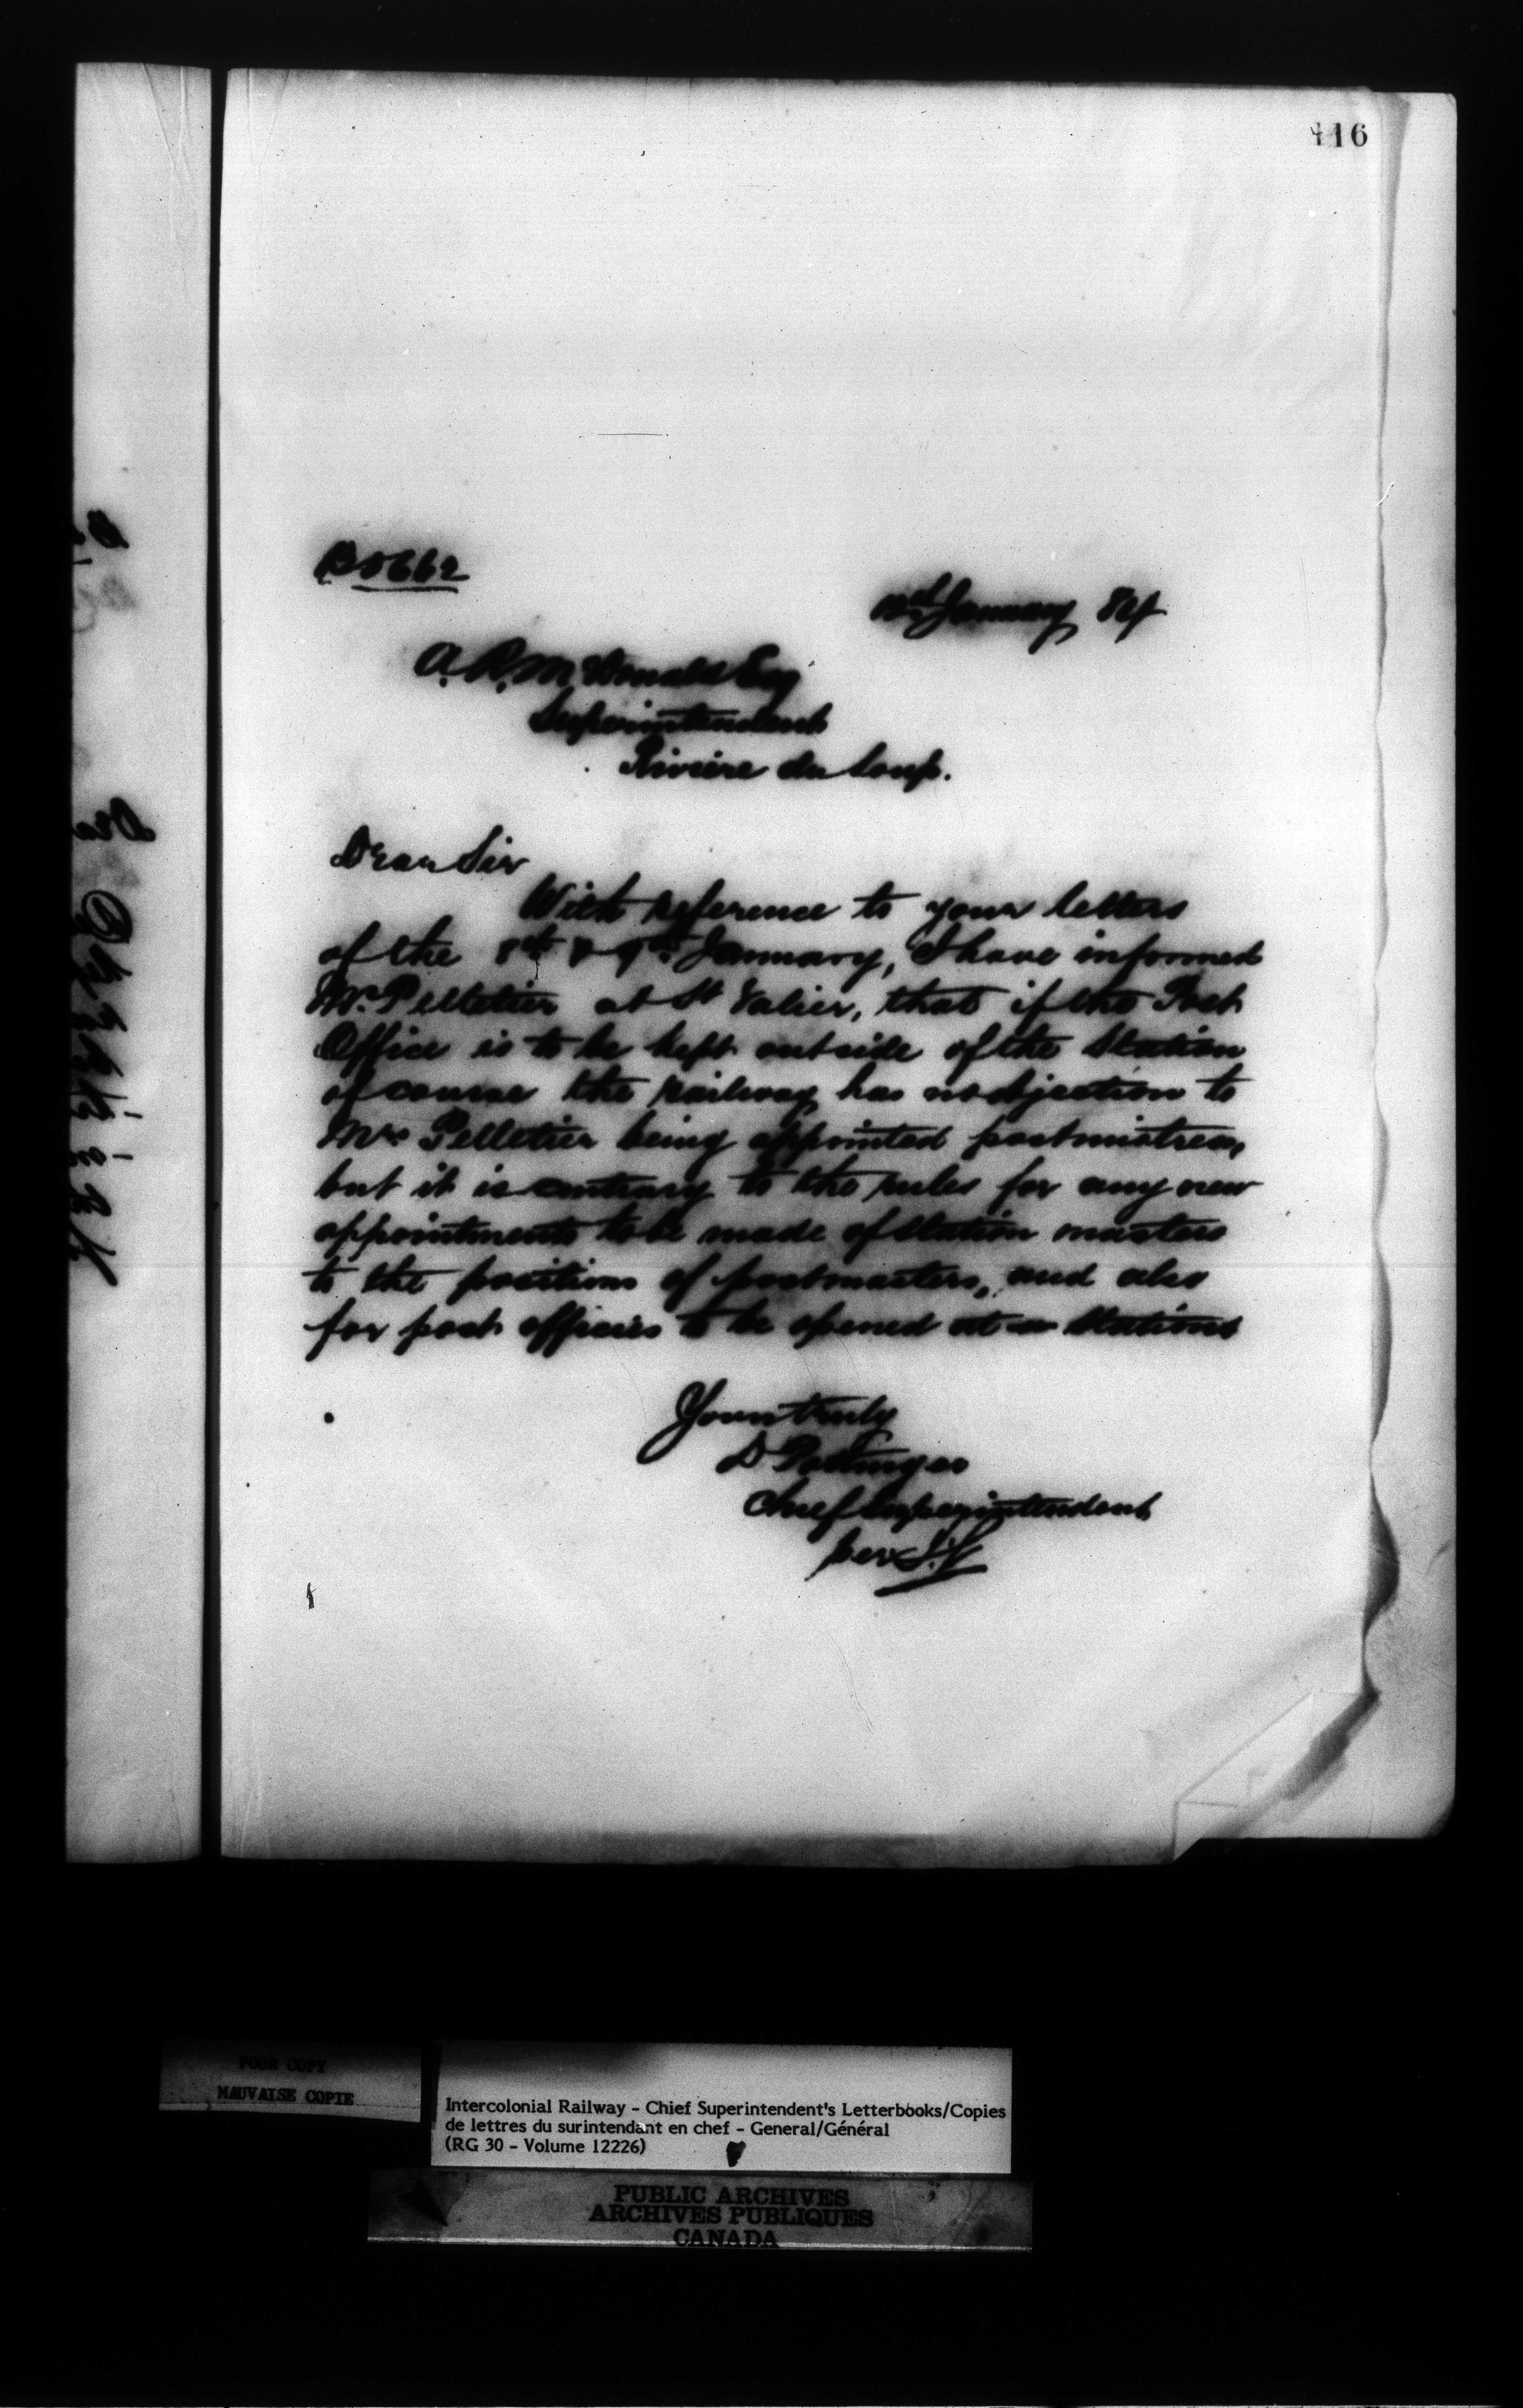 116
B 5662
January 84
A. R. McDonald Esq
Superintendent
Rivière du Loup.
Dear Sir
With reference to your letters
of the 8th & 9th January, I have informed
Mr. Pelletier at St Valier, that if the Post
Office is to be kept outside of the Station
of course the railway has no objection to
Mrs Pelletier being appointed postmistress,
but it is contrary to the rules for any new
appointments to be made of Station masters
to the positions of postmasters, and also
for post offices to be opened at Stations
Yours truly
D Pottinger
Chief Superintendent
per
POOR COPY
MAUVAISE COPIE
Intercolonial Railway - Chief Superintendent's Letterbooks/Copies
de lettres du surintendant en chef - General/Général
(RG 30 - Volume 12226)
PUBLIC ARCHIVES
ARCHIVES PUBLIQUES
CANADA